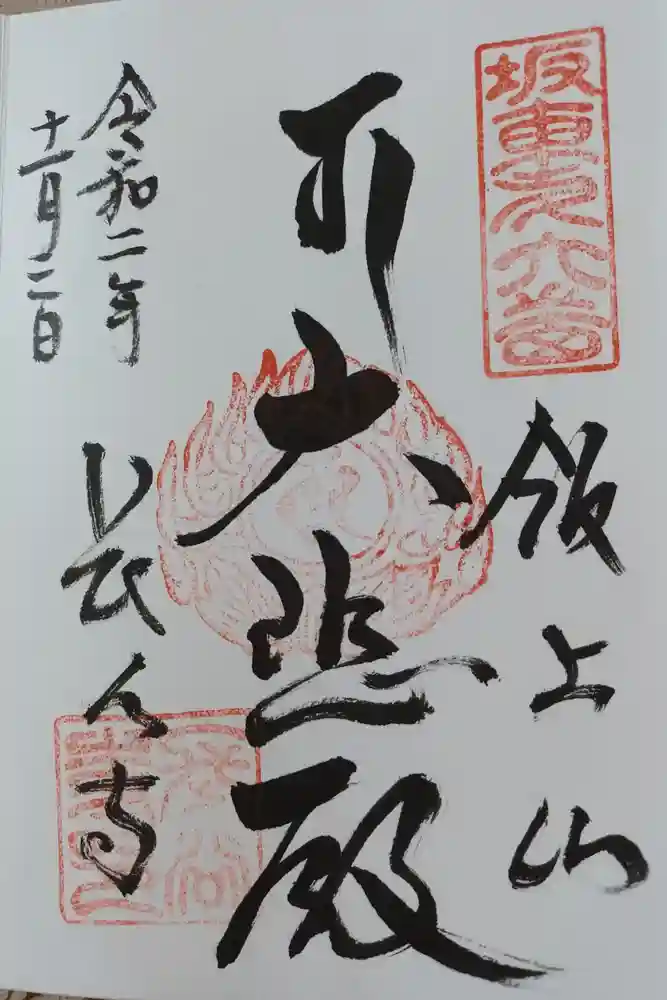 坂東第六番
飯上山
大悲殿
令和二年
十一月二日
長谷寺